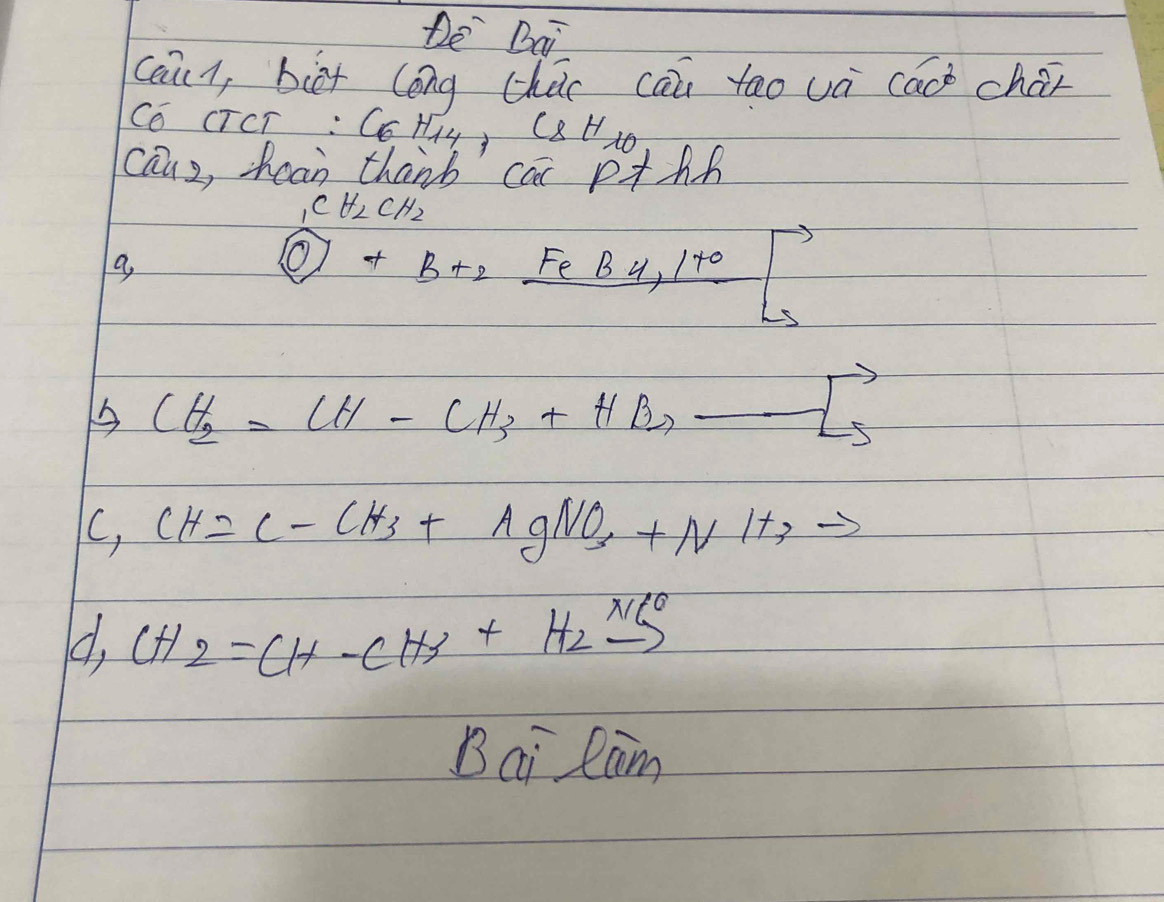 Đề Bài
Câu 1, biết công thức cấu tạo và các chất
Có CTCT : C6 H14, C8 H10,
Câu 2, hoàn thành các pt hh
CH2 CH2
a, + B+2 Fe B4, t0
b, CH2 = CH - CH3 + HB2
C, CH = C - CH3 + AgNO3 + N H3 →
d, CH2 = CH - CH3 + H2 Nt0
Bài làm